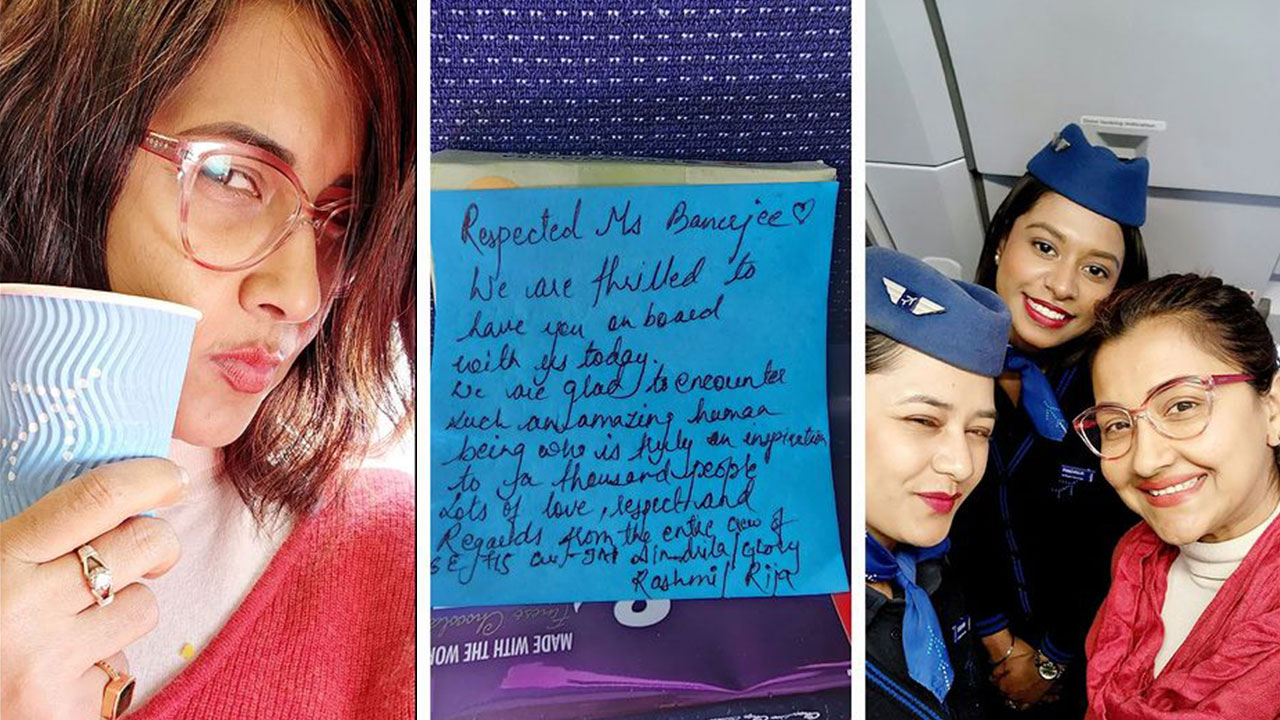 Respected Ms Banerjee ♡
We are thrilled to
have you on board
with us today.
We are glad to encounter
such an amazing human
being who is truly an inspiration
to a thousand people
Lots of love, respect and
Regards from the entire crew of
Rashmi/ Rija
MADE WITH THE
Finest Chocola